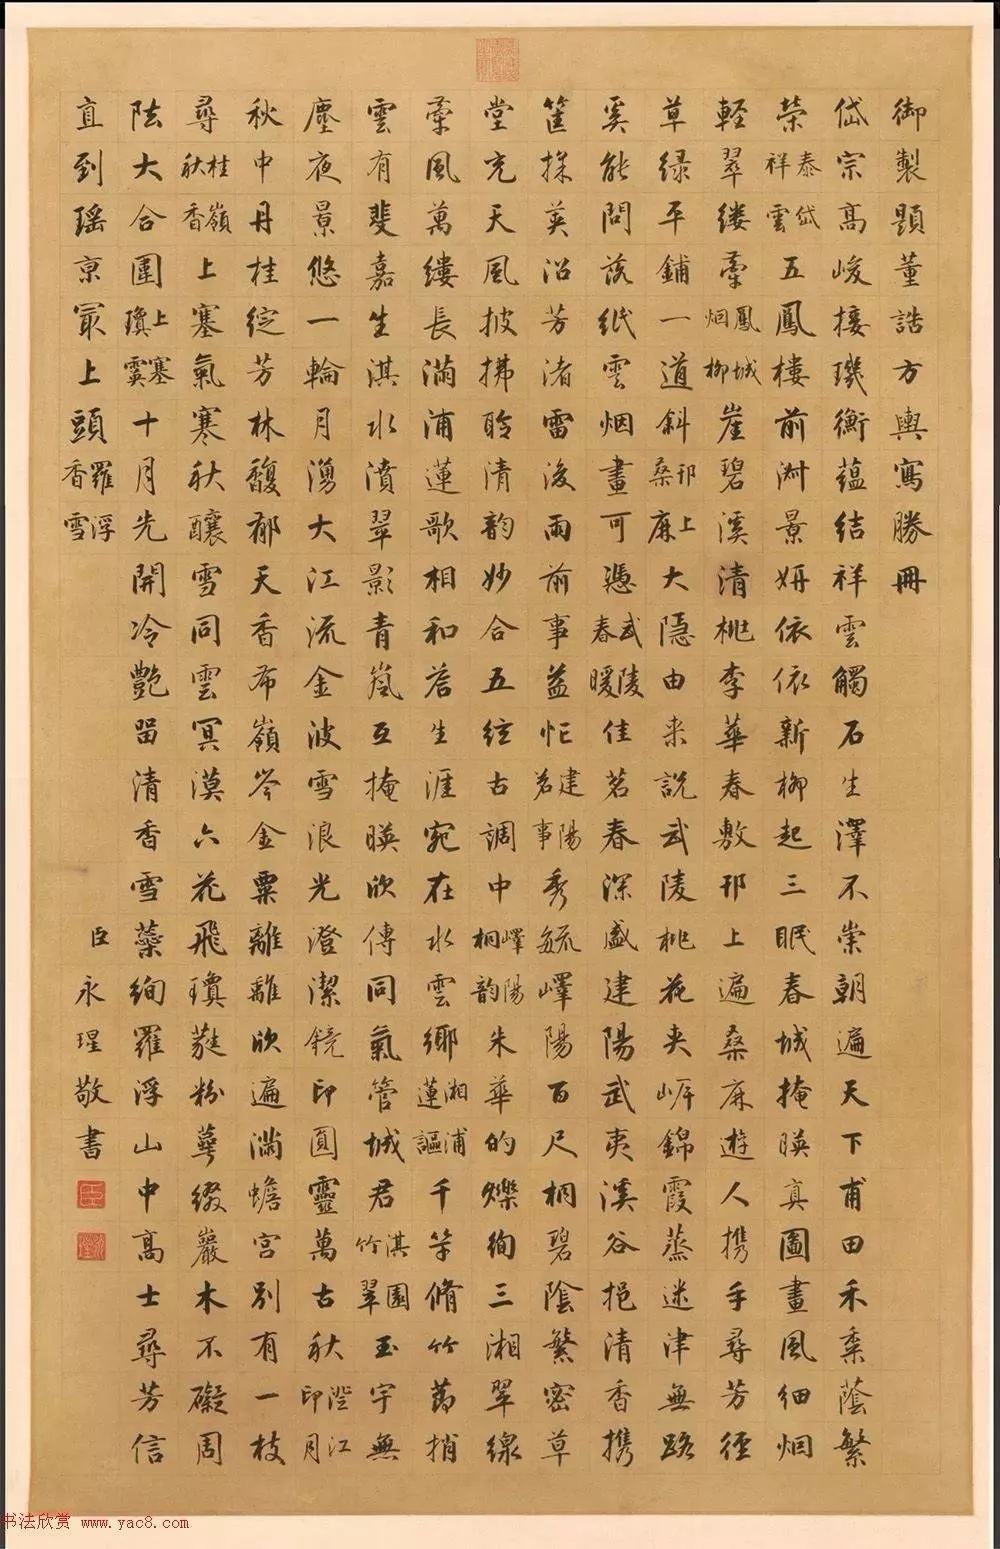 御製題董誥方輿寫勝冊
岱宗高峻接璣衡蘊結祥雲觸石生澤不崇朝遍天下甫田禾黍蔭繁
榮泰岱祥雲五鳳樓前淑景妍依依新柳起三眠春城掩暎真圖畫風細烟
輕翠縷牽鳳城烟柳崖碧溪清桃李華春敷邗上遍桑麻遊人攜手尋芳徑
草綠平鋪一道斜邗上桑麻大隱由來說武陵桃花夾岸錦霞蒸迷津無路
奚能問落紙雲烟畫可憑武陵春暖佳茗春深盛建陽武夷溪谷挹清香攜
筐採英沿芳渚雷後雨前事益忙建陽茗事秀毓嶧陽百尺桐碧陰繁密草
堂充天風披拂聆清韵妙合五絃古調中嶧陽桐韵朱華的爍絢三湘翠線
牽風萬縷長滿浦蓮歌相和答生涯宛在水雲鄉湘浦蓮謳千竿脩竹捎
雲有斐嘉生淇水濆翠影青嵐互掩暎欣傳同氣管城君淇園竹翠玉宇無
塵夜景悠一輪月湧大江流金波雪浪光澄潔鏡印圓靈萬古秋澄江印月
秋中丹桂綻芳林馥郁天香布嶺岑金粟離離欣遍滿蟾宮別有一枝
尋桂嶺秋香上塞氣寒秋釀雪同雲冥漠六花飛瓊蕤粉蕚綴巖木不礙周
阹大合圍上塞瓊霙十月先開冷艷留清香雪蘂絢羅浮山中高士尋芳信
直到瑤京最上頭羅浮香雪
臣永瑆敬書
书法欣赏 www.yac8.com